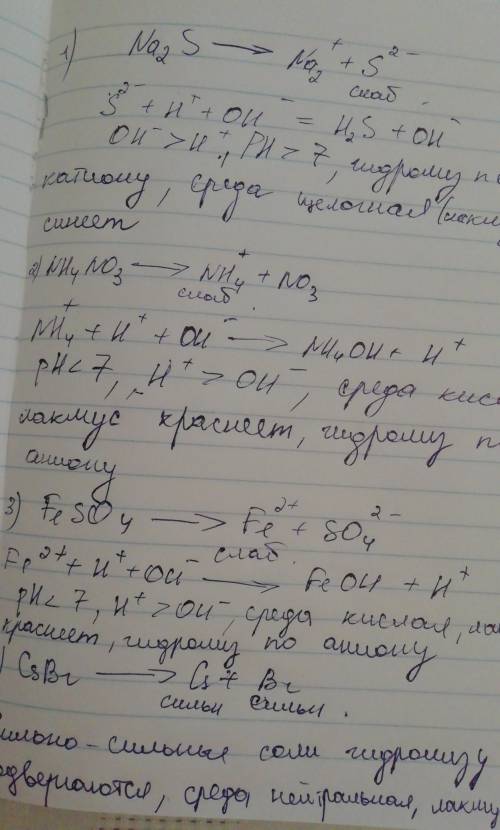 1) Na2S → Na2⁺ + S²⁻
слаб.
S²⁻ + H⁺ + OH⁻ = H2S + OH⁻
OH⁻ > H⁺, PH > 7, гидролиз по
катиону, среда щелочная (лакму
синеет
2) NH4NO3 → NH4⁺ + NO3
слаб.
NH4⁺ + H⁺ + OH⁻ → NH4OH + H⁺
pH < 7, H⁺ > OH⁻, среда кисл
лакмус краснеет, гидролиз п
аниону
3) FeSO4 → Fe²⁺ + SO4²⁻
слаб.
Fe²⁺ + H⁺ + OH⁻ → FeOH + H⁺
pH < 7, H⁺ > OH⁻, среда кислая, лак
краснеет, гидролиз по аниону
) CsBr → Cs + Br
сильн сильн.
ильно-сильные соли гидролизу
одвергаются, среда нейтральная, лакму